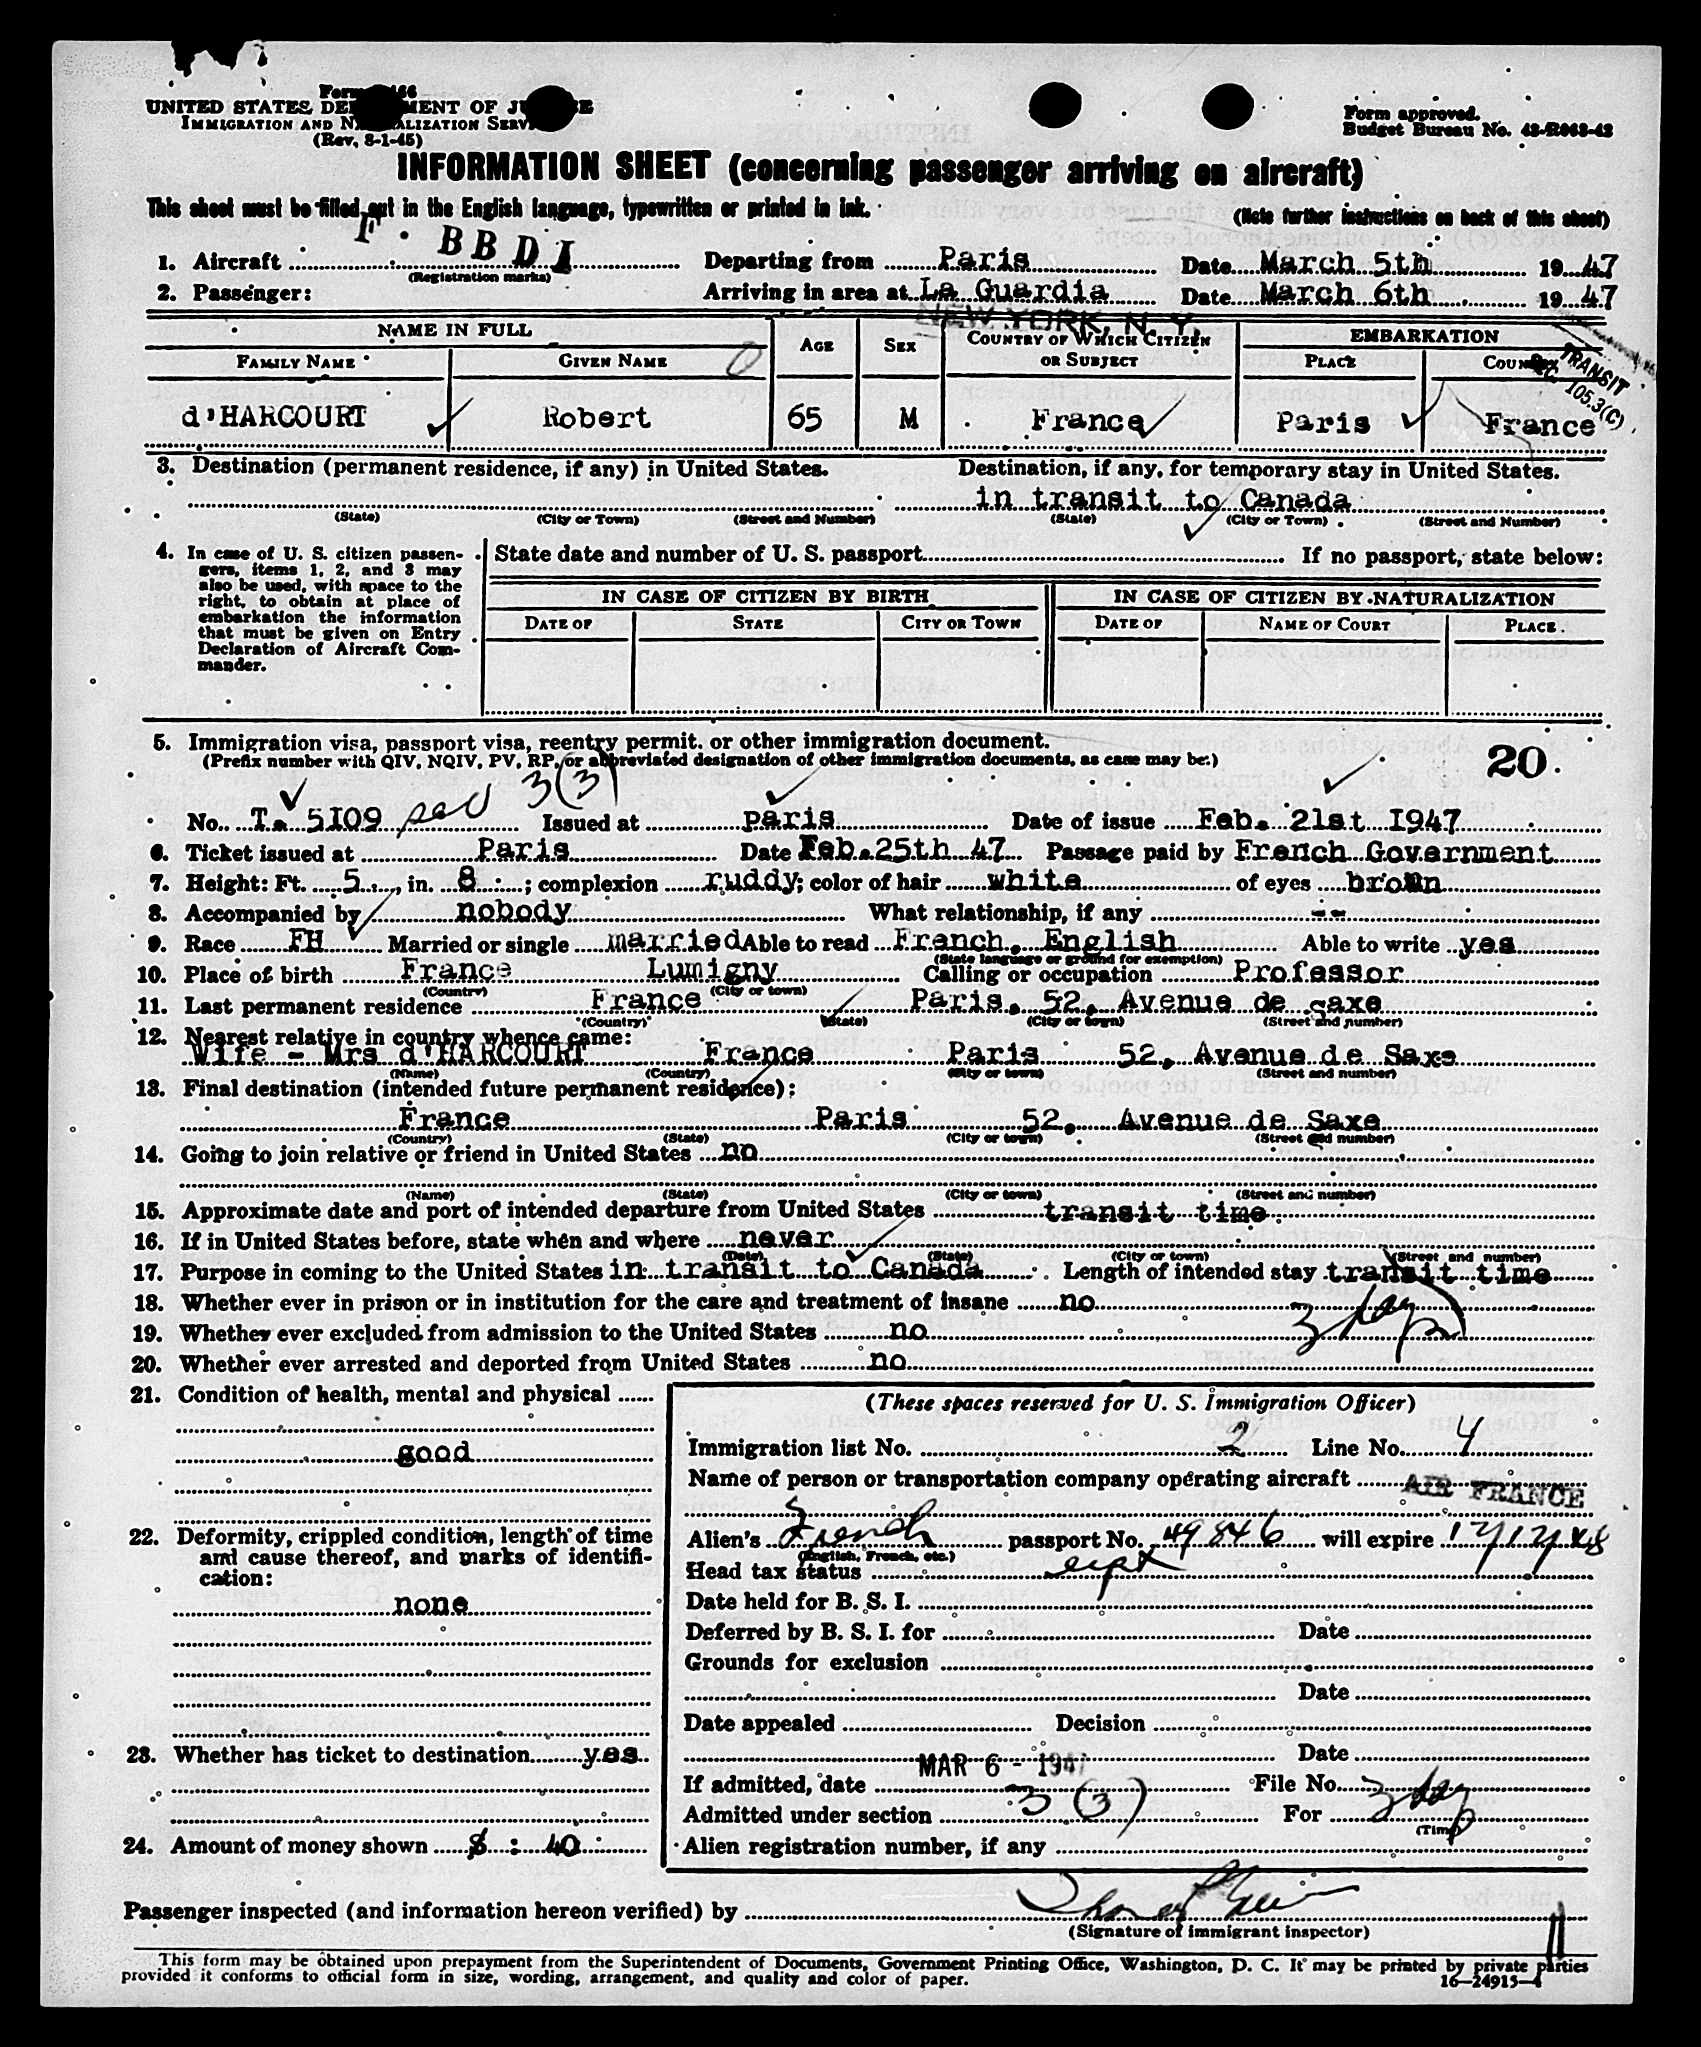 UNITED STATES DEPARTMENT OF JUSTICE
IMMIGRATION AND NATURALIZATION SERVICE
(Rev. 8-1-45)
Form approved.
Budget Bureau No. 43-R063-43
INFORMATION SHEET (concerning passenger arriving on aircraft)
This sheet must be filled out in the English language, typewritten or printed in ink.
(Note further instructions on back of this sheet)
1. Aircraft F. BBDI Departing from Paris Date March 5th 1947
(Registration marks)
2. Passenger: Arriving in area at La Guardia Date March 6th 1947
NEW YORK, N. Y.
NAME IN FULL AGE SEX COUNTRY OF WHICH CITIZEN OR SUBJECT EMBARKATION
FAMILY NAME GIVEN NAME PLACE COUNTRY
TRANSIT
SEC. 105.3(C)
d'HARCOURT Robert 65 M France Paris France
3. Destination (permanent residence, if any) in United States. Destination, if any, for temporary stay in United States.
in transit to Canada
(State) (City or Town) (Street and Number) (State) (City or Town) (Street and Number)
4. In case of U. S. citizen passen-
gers, items 1, 2, and 3 may
also be used, with space to the
right, to obtain at place of
embarkation the information
that must be given on Entry
Declaration of Aircraft Com-
mander.
State date and number of U. S. passport If no passport, state below:
IN CASE OF CITIZEN BY BIRTH IN CASE OF CITIZEN BY NATURALIZATION
DATE OF STATE CITY OR TOWN DATE OF NAME OF COURT PLACE
5. Immigration visa, passport visa, reentry permit, or other immigration document.
(Prefix number with QIV, NQIV, PV, RP, or abbreviated designation of other immigration documents, as case may be.)
20
3(3)
No. T. 5I09 Issued at paris Date of issue Feb. 21st I947
6. Ticket issued at Paris Date Feb.25th 47 Passage paid by French Government
7. Height: Ft. 5 , in. 8 ; complexion ruddy; color of hair white of eyes brown
8. Accompanied by nobody What relationship, if any --
9. Race FH Married or single married Able to read French, English Able to write yes
(State language or ground for exemption)
10. Place of birth France Lumigny Calling or occupation Professor
(Country) (City or town)
11. Last permanent residence France Paris, 52, Avenue de Saxe
(Country) (State) (City or town) (Street and number)
12. Nearest relative in country whence came:
Wife - Mrs d'HARCOURT France Paris 52, Avenue de Saxe
(Name) (Country) (City or town) (Street and number)
13. Final destination (intended future permanent residence):
France Paris 52, Avenue de Saxe
(Country) (State) (City or town) (Street and number)
14. Going to join relative or friend in United States no
(Name) (State) (City or town) (Street and number)
15. Approximate date and port of intended departure from United States transit time
16. If in United States before, state when and where never
(Date) (State) (City or town) (Street and number)
17. Purpose in coming to the United States in transit to Canada Length of intended stay transit time
18. Whether ever in prison or in institution for the care and treatment of insane no
3 days
19. Whether ever excluded from admission to the United States no
20. Whether ever arrested and deported from United States no
21. Condition of health, mental and physical
good
22. Deformity, crippled condition, length of time
and cause thereof, and marks of identifi-
cation:
none
23. Whether has ticket to destination yes
24. Amount of money shown $ : 40
(These spaces reserved for U. S. Immigration Officer)
Immigration list No. 2 Line No. 4
Name of person or transportation company operating aircraft AIR FRANCE
Alien's French passport No. 49846 will expire 12/12/48
(English, French, etc.)
Head tax status
Date held for B. S. I.
Deferred by B. S. I. for Date
Grounds for exclusion
Date
Date appealed Decision
Date
If admitted, date MAR 6 - 1947 File No.
Admitted under section 3 (3) For 3 days
(Time)
Alien registration number, if any
Passenger inspected (and information hereon verified) by
(Signature of immigrant inspector)
This form may be obtained upon prepayment from the Superintendent of Documents, Government Printing Office, Washington, D. C. It may be printed by private parties
provided it conforms to official form in size, wording, arrangement, and quality and color of paper.
16—24915-4